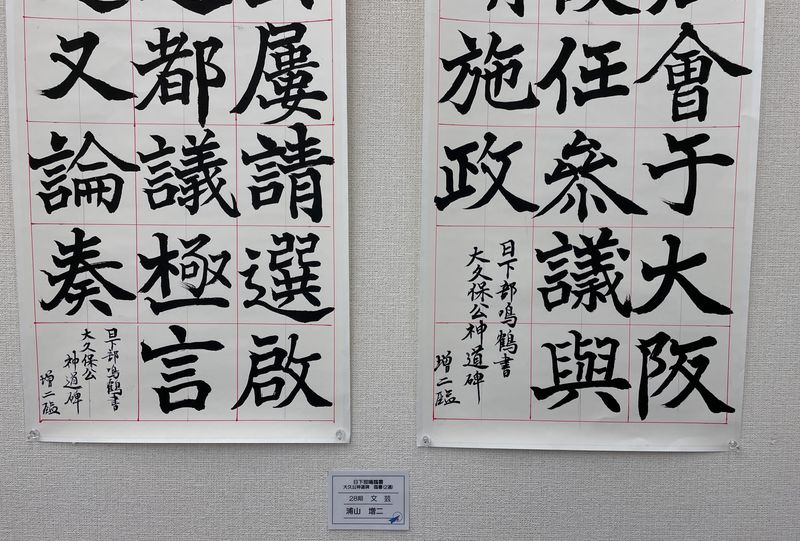 會于大阪
任參議與
施政
日下部鳴鶴書
大久保公神道碑
増二臨
屢請選啟
都議極言
又論奏
日下部鳴鶴書
大久保公
神道碑
増二臨
日下部鳴鶴書
大久公神道碑 臨書
28期 文芸
浦山 増二